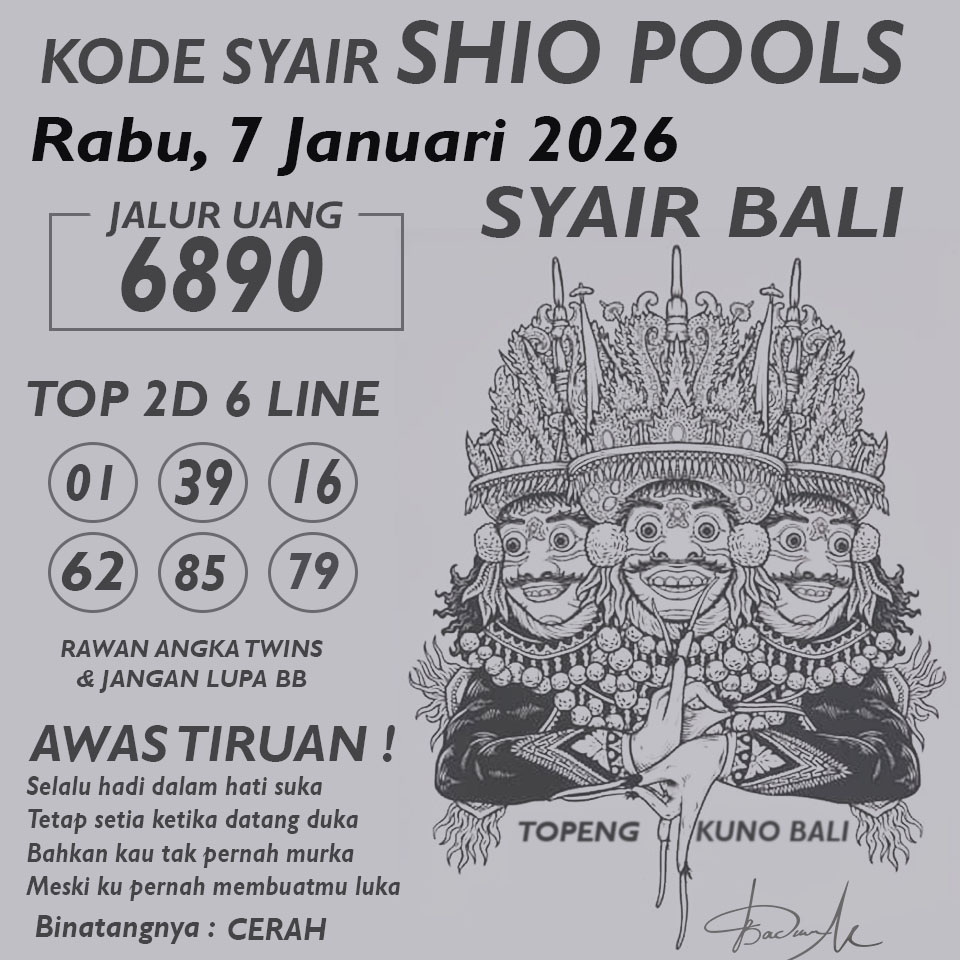 KODE SYAIR SHIO POOLS
Rabu, 7 Januari 2026
SYAIR BALI
JALUR UANG
6890
TOP 2D 6 LINE
01 39 16
62 85 79
RAWAN ANGKA TWINS
& JANGAN LUPA BB
AWAS TIRUAN !
Selalu hadi dalam hati suka
Tetap setia ketika datang duka
Bahkan kau tak pernah murka
Meski ku pernah membuatmu luka
Binatangnya : CERAH
TOPENG KUNO BALI